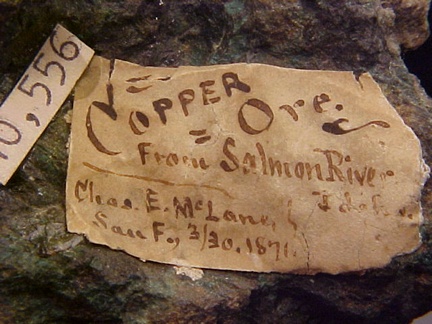 10,556
Copper Ore.
From Salmon River.
Idaho.
Chas. E. McLane,
San F., 3/30.1871.